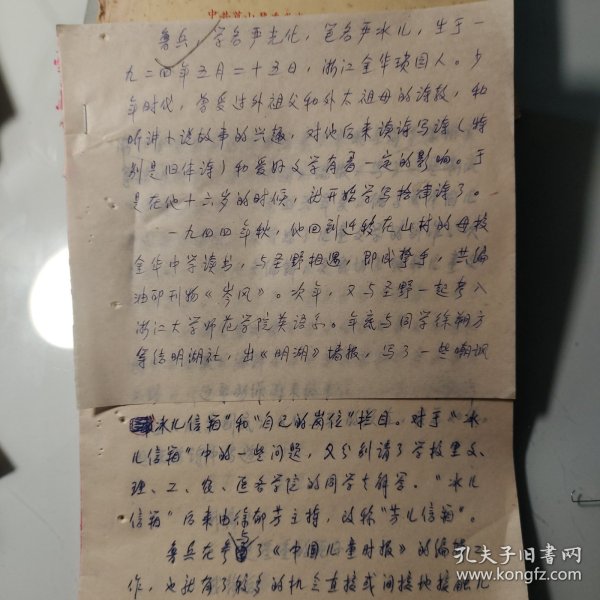 鲁兵，学名严光化，笔名严冰儿，生于一
九二四年五月二十五日，浙江金华琐园人。少
年时代，曾受过外祖父和外太祖母的诗教，和
听讲小说故事的兴趣，对他后来读诗写诗（特
别是旧体诗）和爱好文学有着一定的影响。于
是在他十六岁的时候，就开始学写格律诗了。
一九四四年秋，他回到迁校在山村的母校
金华中学读书，与圣野相遇，即成挚手，共编
油印刊物《岑风》。次年，又与圣野一起考入
浙江大学师范学院英语系。年底与同学徐朔方
等结明湖社，出《明湖》墙报，写了一些嘲讽
"冰儿信箱"和"自己的岗位"栏目。对于"冰
儿信箱"中的一些问题，又分别请了学校里文、
理、工、农、医各学院的同学去解答。"冰儿
信箱"后来由徐郁芳主持，改称"芳儿信箱"。
鲁兵在参与了《中国儿童时报》的编辑工
作，也就有了较多的机会直接或间接地接触儿
孔夫子旧书网
www.kongfz.com